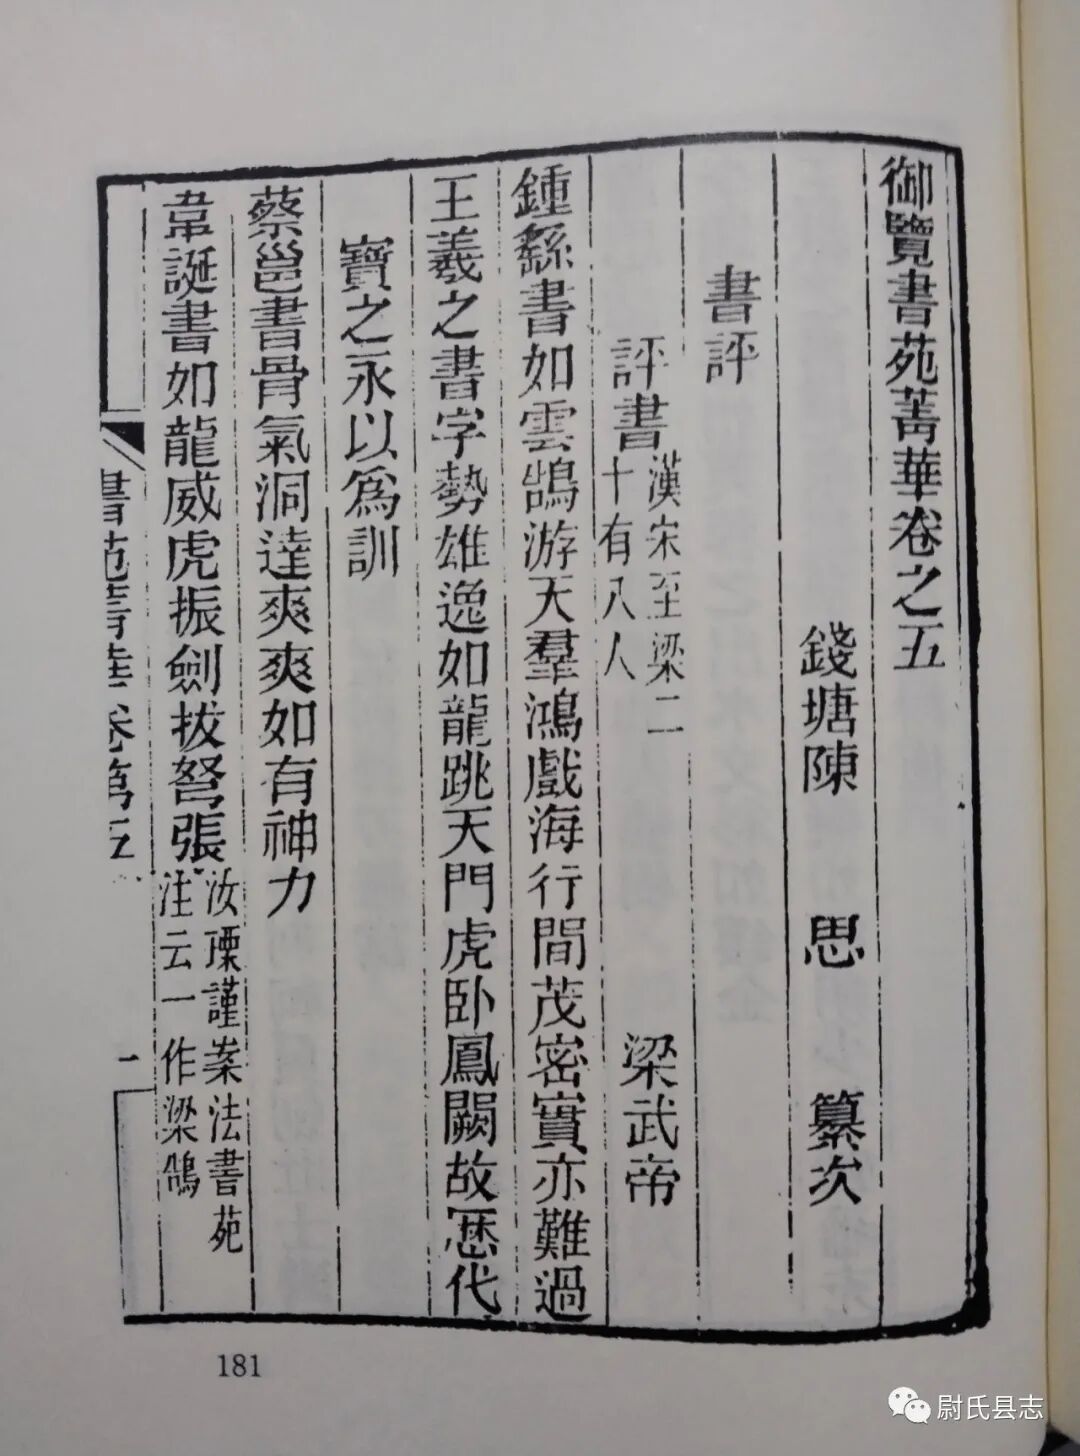 御覽書苑菁華卷之五
錢塘陳　思　纂次
書評
評書漢宋至梁二十有八人　梁武帝
鍾繇書如雲鵠游天羣鴻戲海行間茂密實亦難過
王羲之書字勢雄逸如龍跳天門虎卧鳳闕故歷代
寶之永以爲訓
蔡邕書骨氣洞達爽爽如有神力
韋誕書如龍威虎振劍拔弩張汝瑮謹案法書苑注云一作梁鵠
書苑菁華卷第五
一
181
尉氏县志